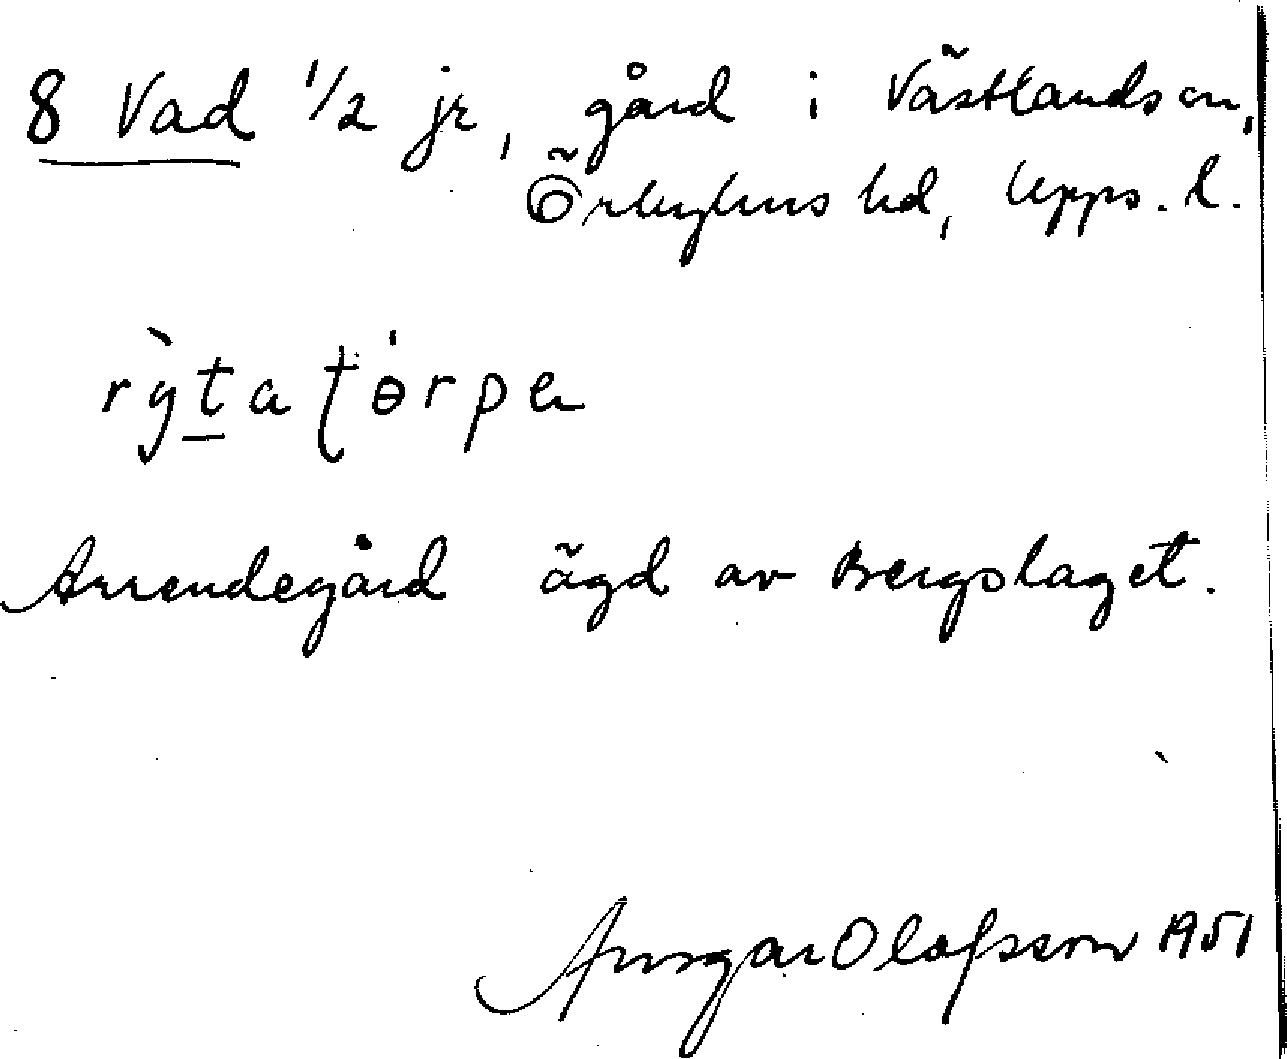 8 Vad 1/2 jr, gård i Västlands sn,
Örbyhus hd, Upps. l.
rỳta tɵ́rpa
Arrendegård ägd av Bergslaget.
Ansgar Olafsson 1951